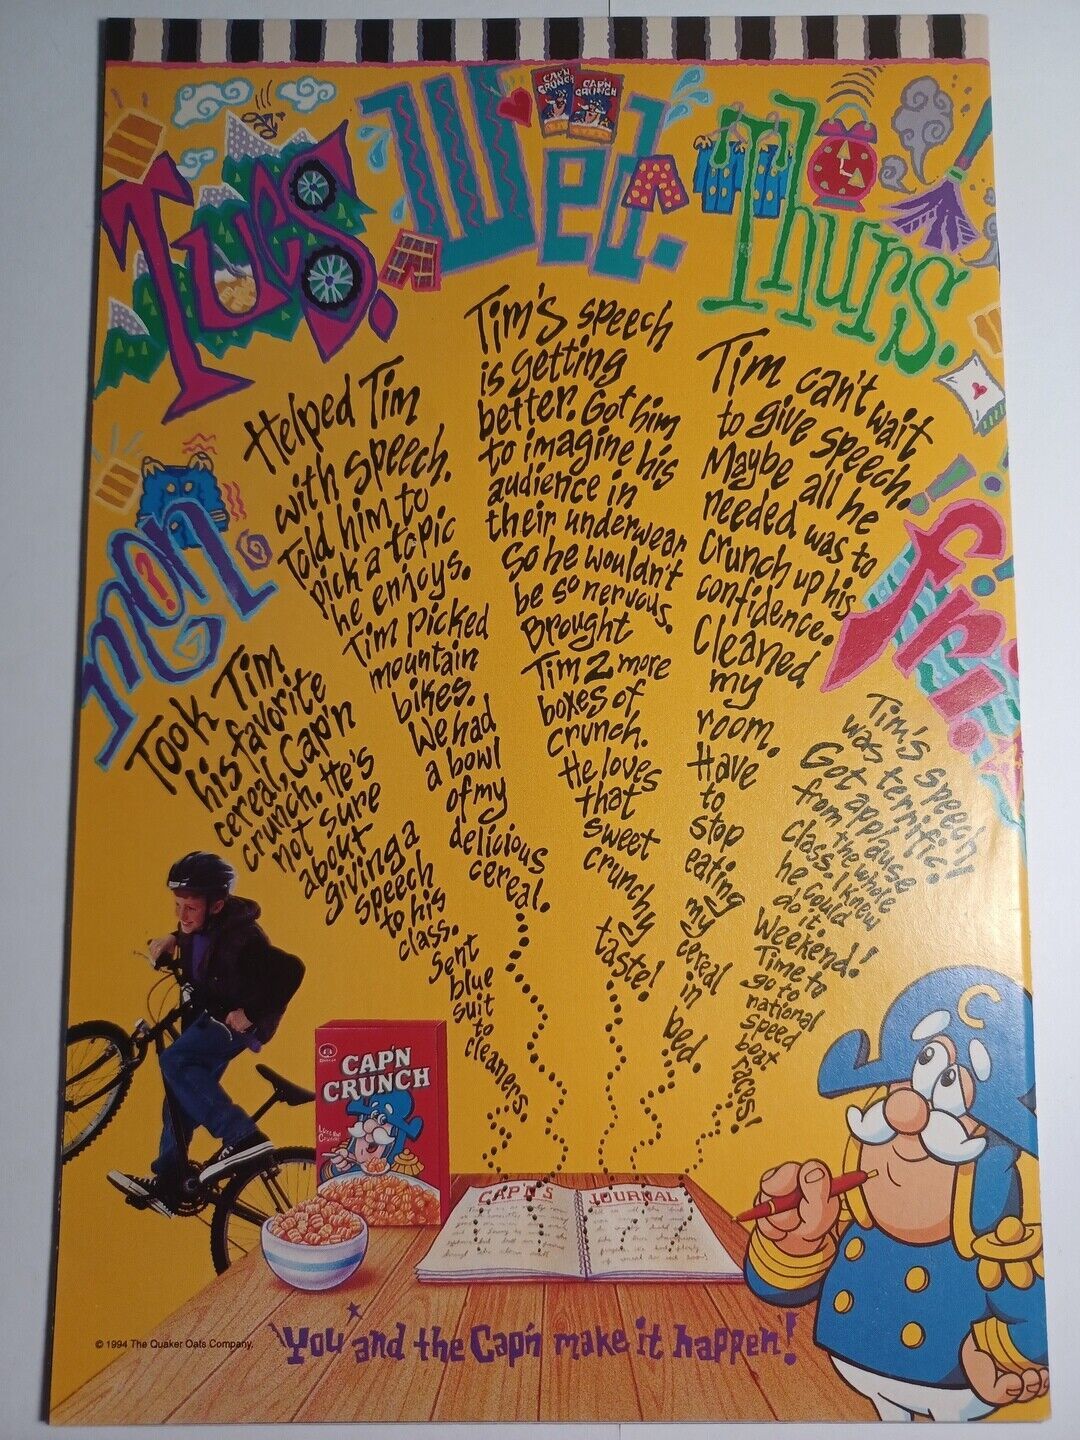 Mon
Took Tim
his favorite
cereal, Cap'n
Crunch. He's
not sure
about
giving a
speech
to his
class.
Sent
blue
suit
to
cleaners.
Tues.
Helped Tim
with speech.
Told him to
pick a topic
he enjoys.
Tim picked
mountain
bikes.
We had
a bowl
of my
delicious
cereal.
Wed.
CAP'N
CRUNCH
CAP'N
CRUNCH
Tim's speech
is getting
better. Got him
to imagine his
audience in
their underwear
so he wouldn't
be so nervous.
Brought
Tim 2 more
boxes of
crunch.
He loves
that
sweet
crunchy
taste!
Thurs.
Tim can't wait
to give speech.
Maybe all he
needed was to
crunch up his
confidence.
Cleaned
my
room.
Have
to
stop
eating
my
cereal
in
bed.
Fri.
Tim's speech
was terrific!
Got applause
from the whole
class. I knew
he could
do it.
Weekend!
Time to
go to
national
speed
boat
races!
CAP'N
CRUNCH
CAP'N'S JOURNAL
C
© 1994 The Quaker Oats Company.
You and the Cap'n make it happen!